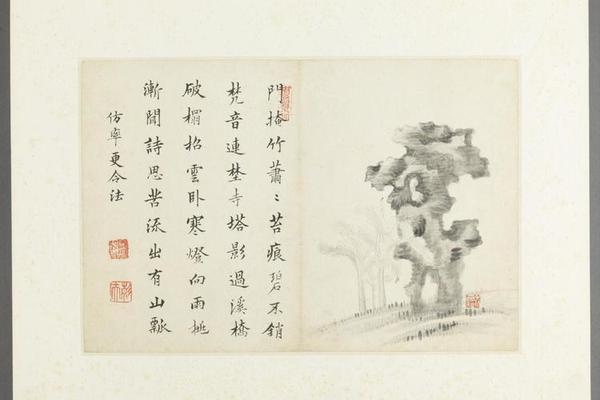 門掩竹蕭〻苔痕碧不銷
梵音連埜寺塔影過溪橋
破榻招雲臥寒燈向雨挑
漸聞詩思苦流出有山瓢
仿率更令法